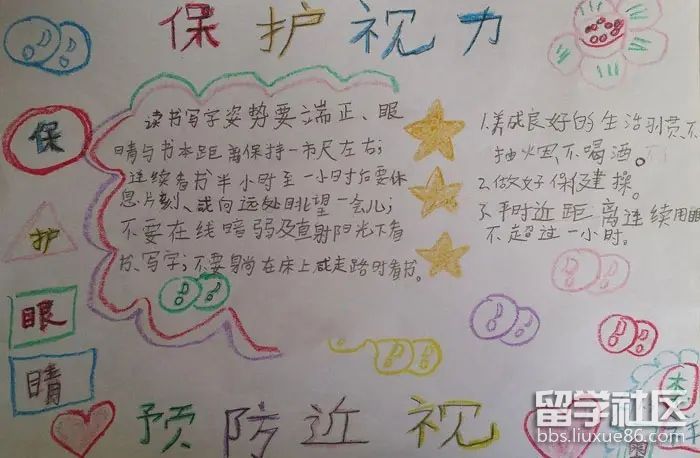 保护视力
保
护
眼
睛
读书写字姿势要端正、眼
睛与书本距离保持一市尺左右;
连续看书半小时至一小时后要休
息片刻、或向远处眺望一会儿;
不要在线暗弱及直射阳光下看
书、写字;不要躺在床上或走路时看书。
1.养成良好的生活习惯不
抽烟不喝酒。
2.做好保健操。
3.平时近距离连续用眼
不超过一小时。
预防近视
留学社区
bbs.liuxue86.com